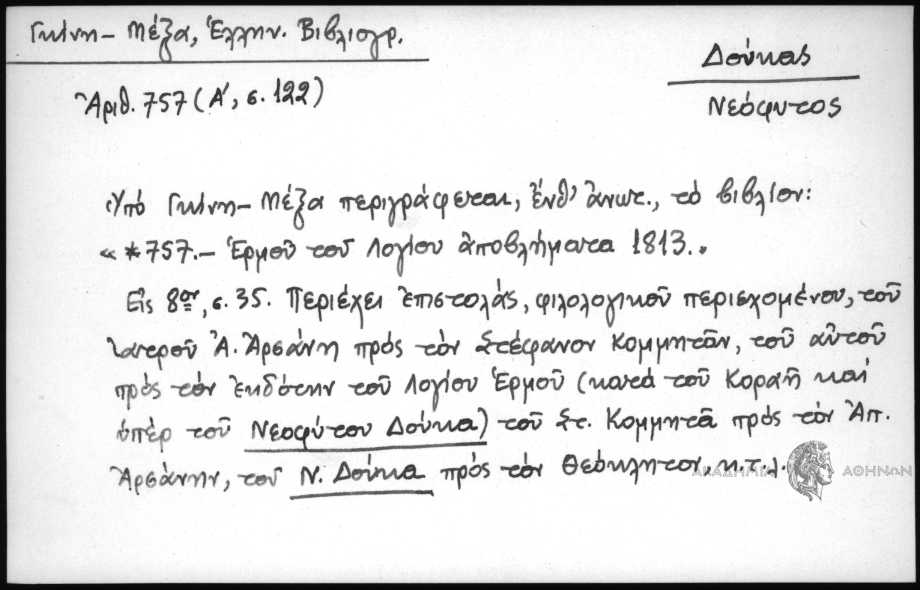 Γκίνη - Μέξα, Ἑλλην. Βιβλιογρ.
Ἀριθ. 757 (Α', σ. 122)
Δούκας
Νεόφυτος
Ὑπό Γκίνη - Μέξα περιγράφεται, ἔνθ' ἄνωτ., τό βιβλίον:
« *757.- Ἑρμοῦ τοῦ Λογίου ἀποβλήματα 1813.»
Εἰς 8ον, σ. 35. Περιέχει ἐπιστολάς, φιλολογικοῦ περιεχομένου, τοῦ
ἰατροῦ Ἀ. Ἀρσάνη πρός τόν Στέφανον Κομμητᾶν, τοῦ αὐτοῦ
πρός τόν ἐκδότην τοῦ Λογίου Ἑρμοῦ (κατά τοῦ Κοραῆ καί
ὑπέρ τοῦ Νεοφύτου Δούκα) τοῦ Στ. Κομμητᾶ πρός τόν Ἀπ.
Ἀρσάνην, τοῦ Ν. Δούκα πρός τόν Θεόκλητον, κ.τ.λ.
ΑΚΑΔΗΜΙΑ ΑΘΗΝΩΝ